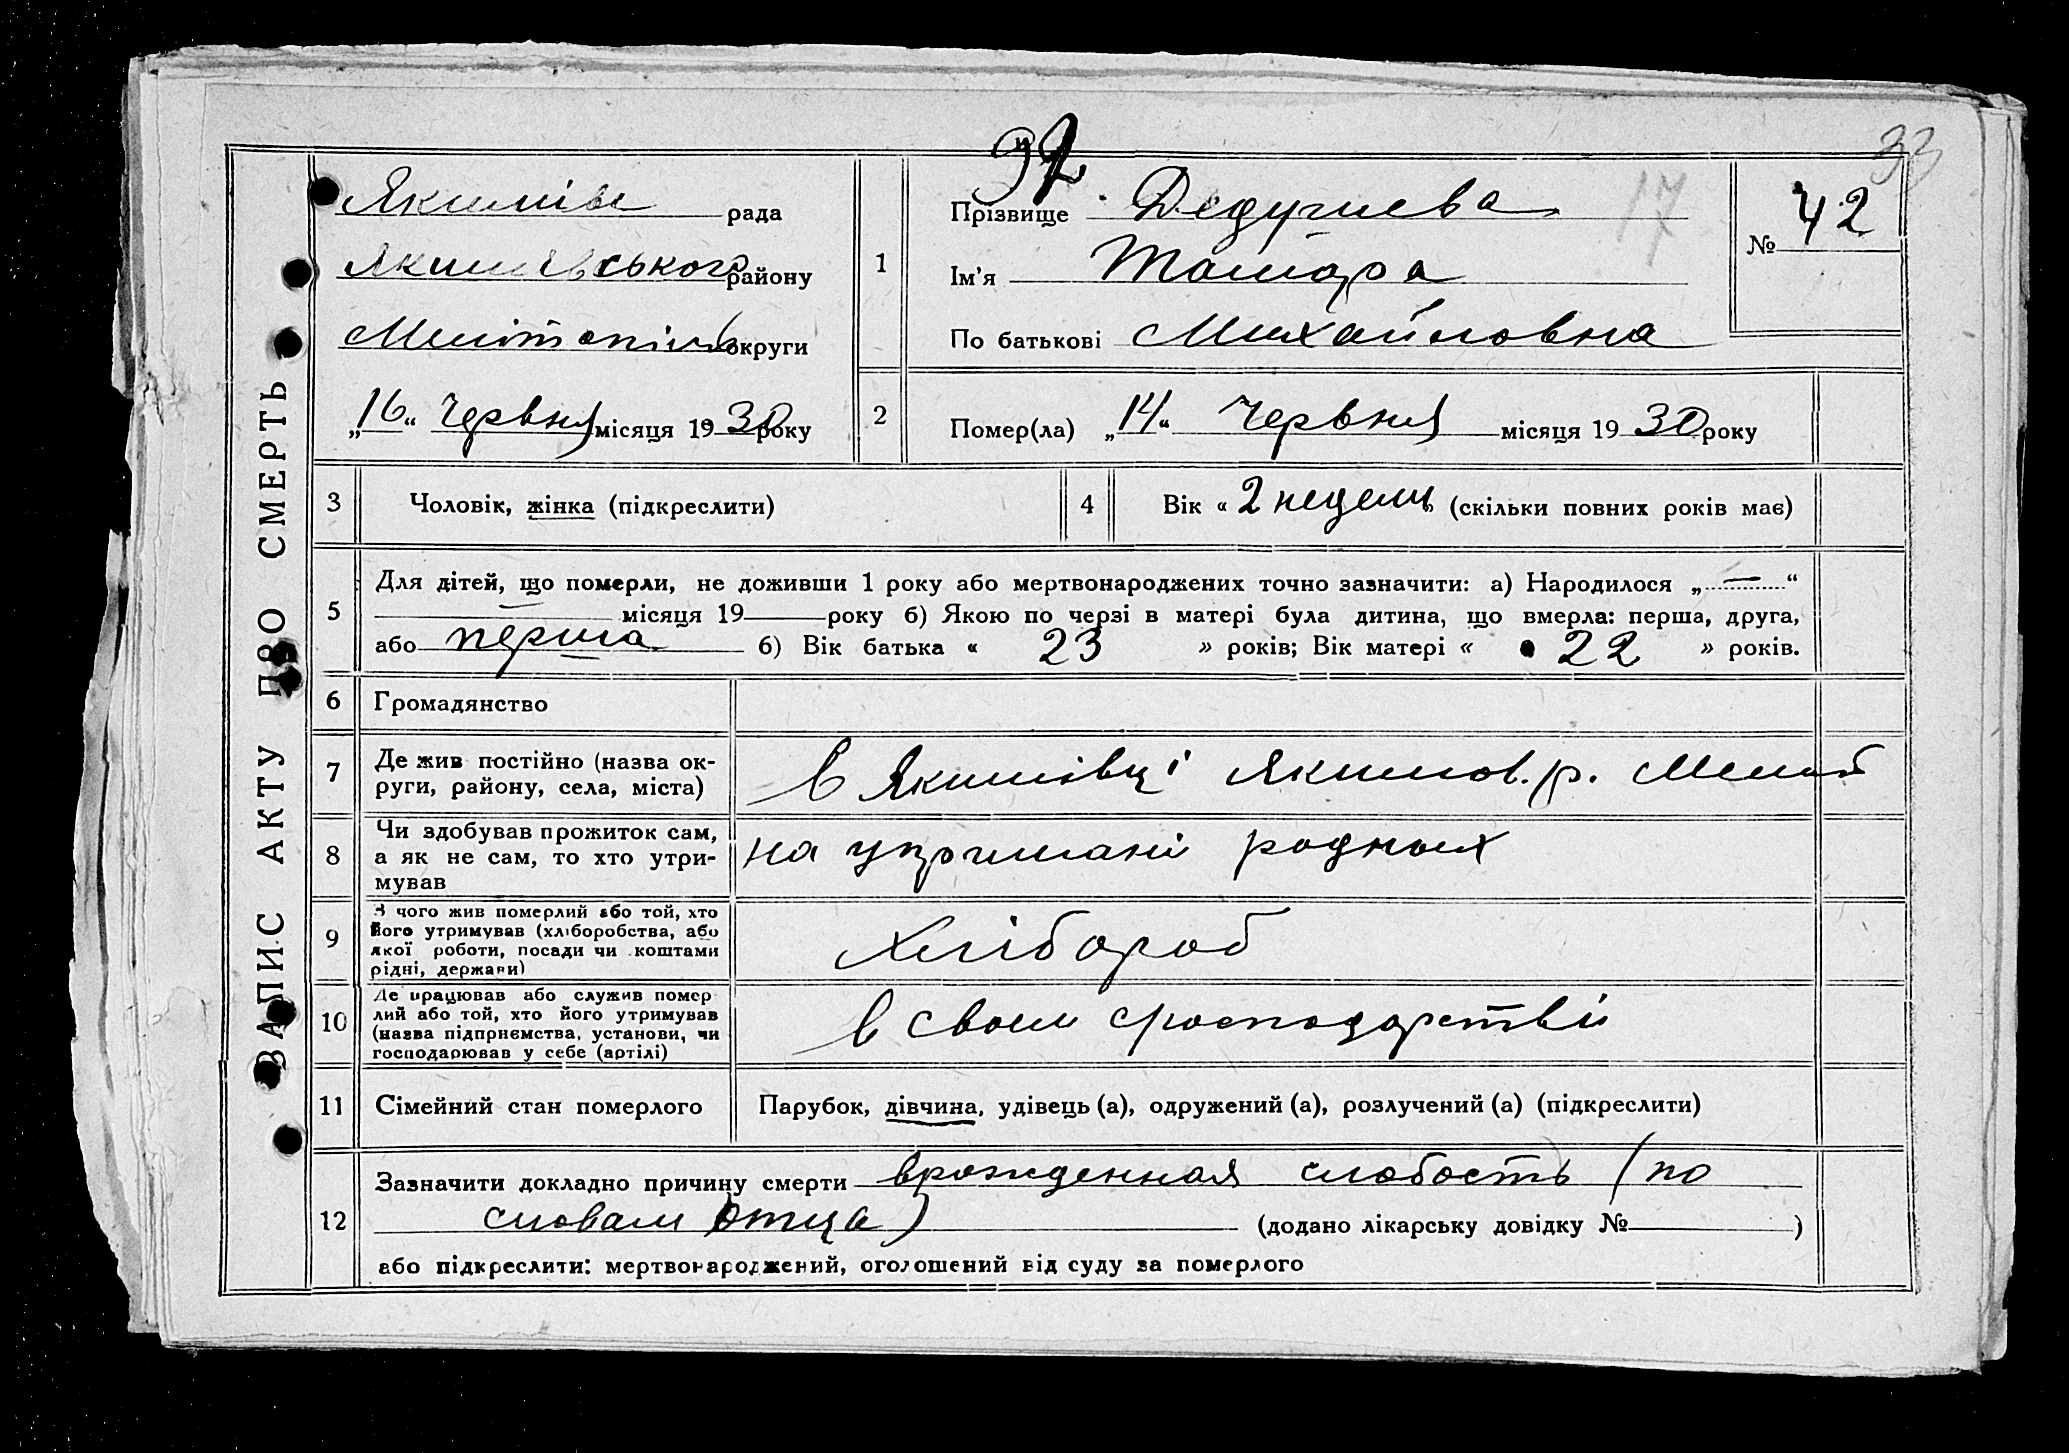 ЗАПИС АКТУ ПРО СМЕРТЬ
92
33
17
Якимів рада
Якимівського району
Мелітопіль округи
„16“ Червня місяця 1930 року
1
Прізвище
Ім'я Тамара
По батькові Михайловна
№ 42
2 Помер(ла) „14“ Червня місяця 1930 року
3 Чоловік, жінка (підкреслити)
4 Вік « 2 недели » (скільки повних років має)
5 Для дітей, що померли, не доживши 1 року або мертвонароджених точно зазначити: а) Народилося „ — “
— місяця 19 року б) Якою по черзі в матері була дитина, що вмерла: перша, друга,
або перша б) Вік батька « 23 » років; Вік матері « 22 » років.
6 Громадянство
7 Де жив постійно (назва ок-
руги, району, села, міста)
в Якимівці Якимов. р. Мелит
8 Чи здобував прожиток сам,
а як не сам, то хто утри-
мував
на утримані родных
9 З чого жив померлий або той, хто
його утримував (хліборобства, або
якої роботи, посади чи коштами
рідні, держави)
Хлібороб
10 Де працював або служив помер
лий або той, хто його утримував
(назва підприємства, установи, чи
господарював у себе (артілі)
в своем господарстві
11 Сімейний стан померлого Парубок, дівчина, удівець (а), одружений (а), розлучений (а) (підкреслити)
12 Зазначити докладно причину смерти врожденная слабость (по
словам отца) (додано лікарську довідку № )
або підкреслити: мертвонароджений, оголошений від суду за померлого